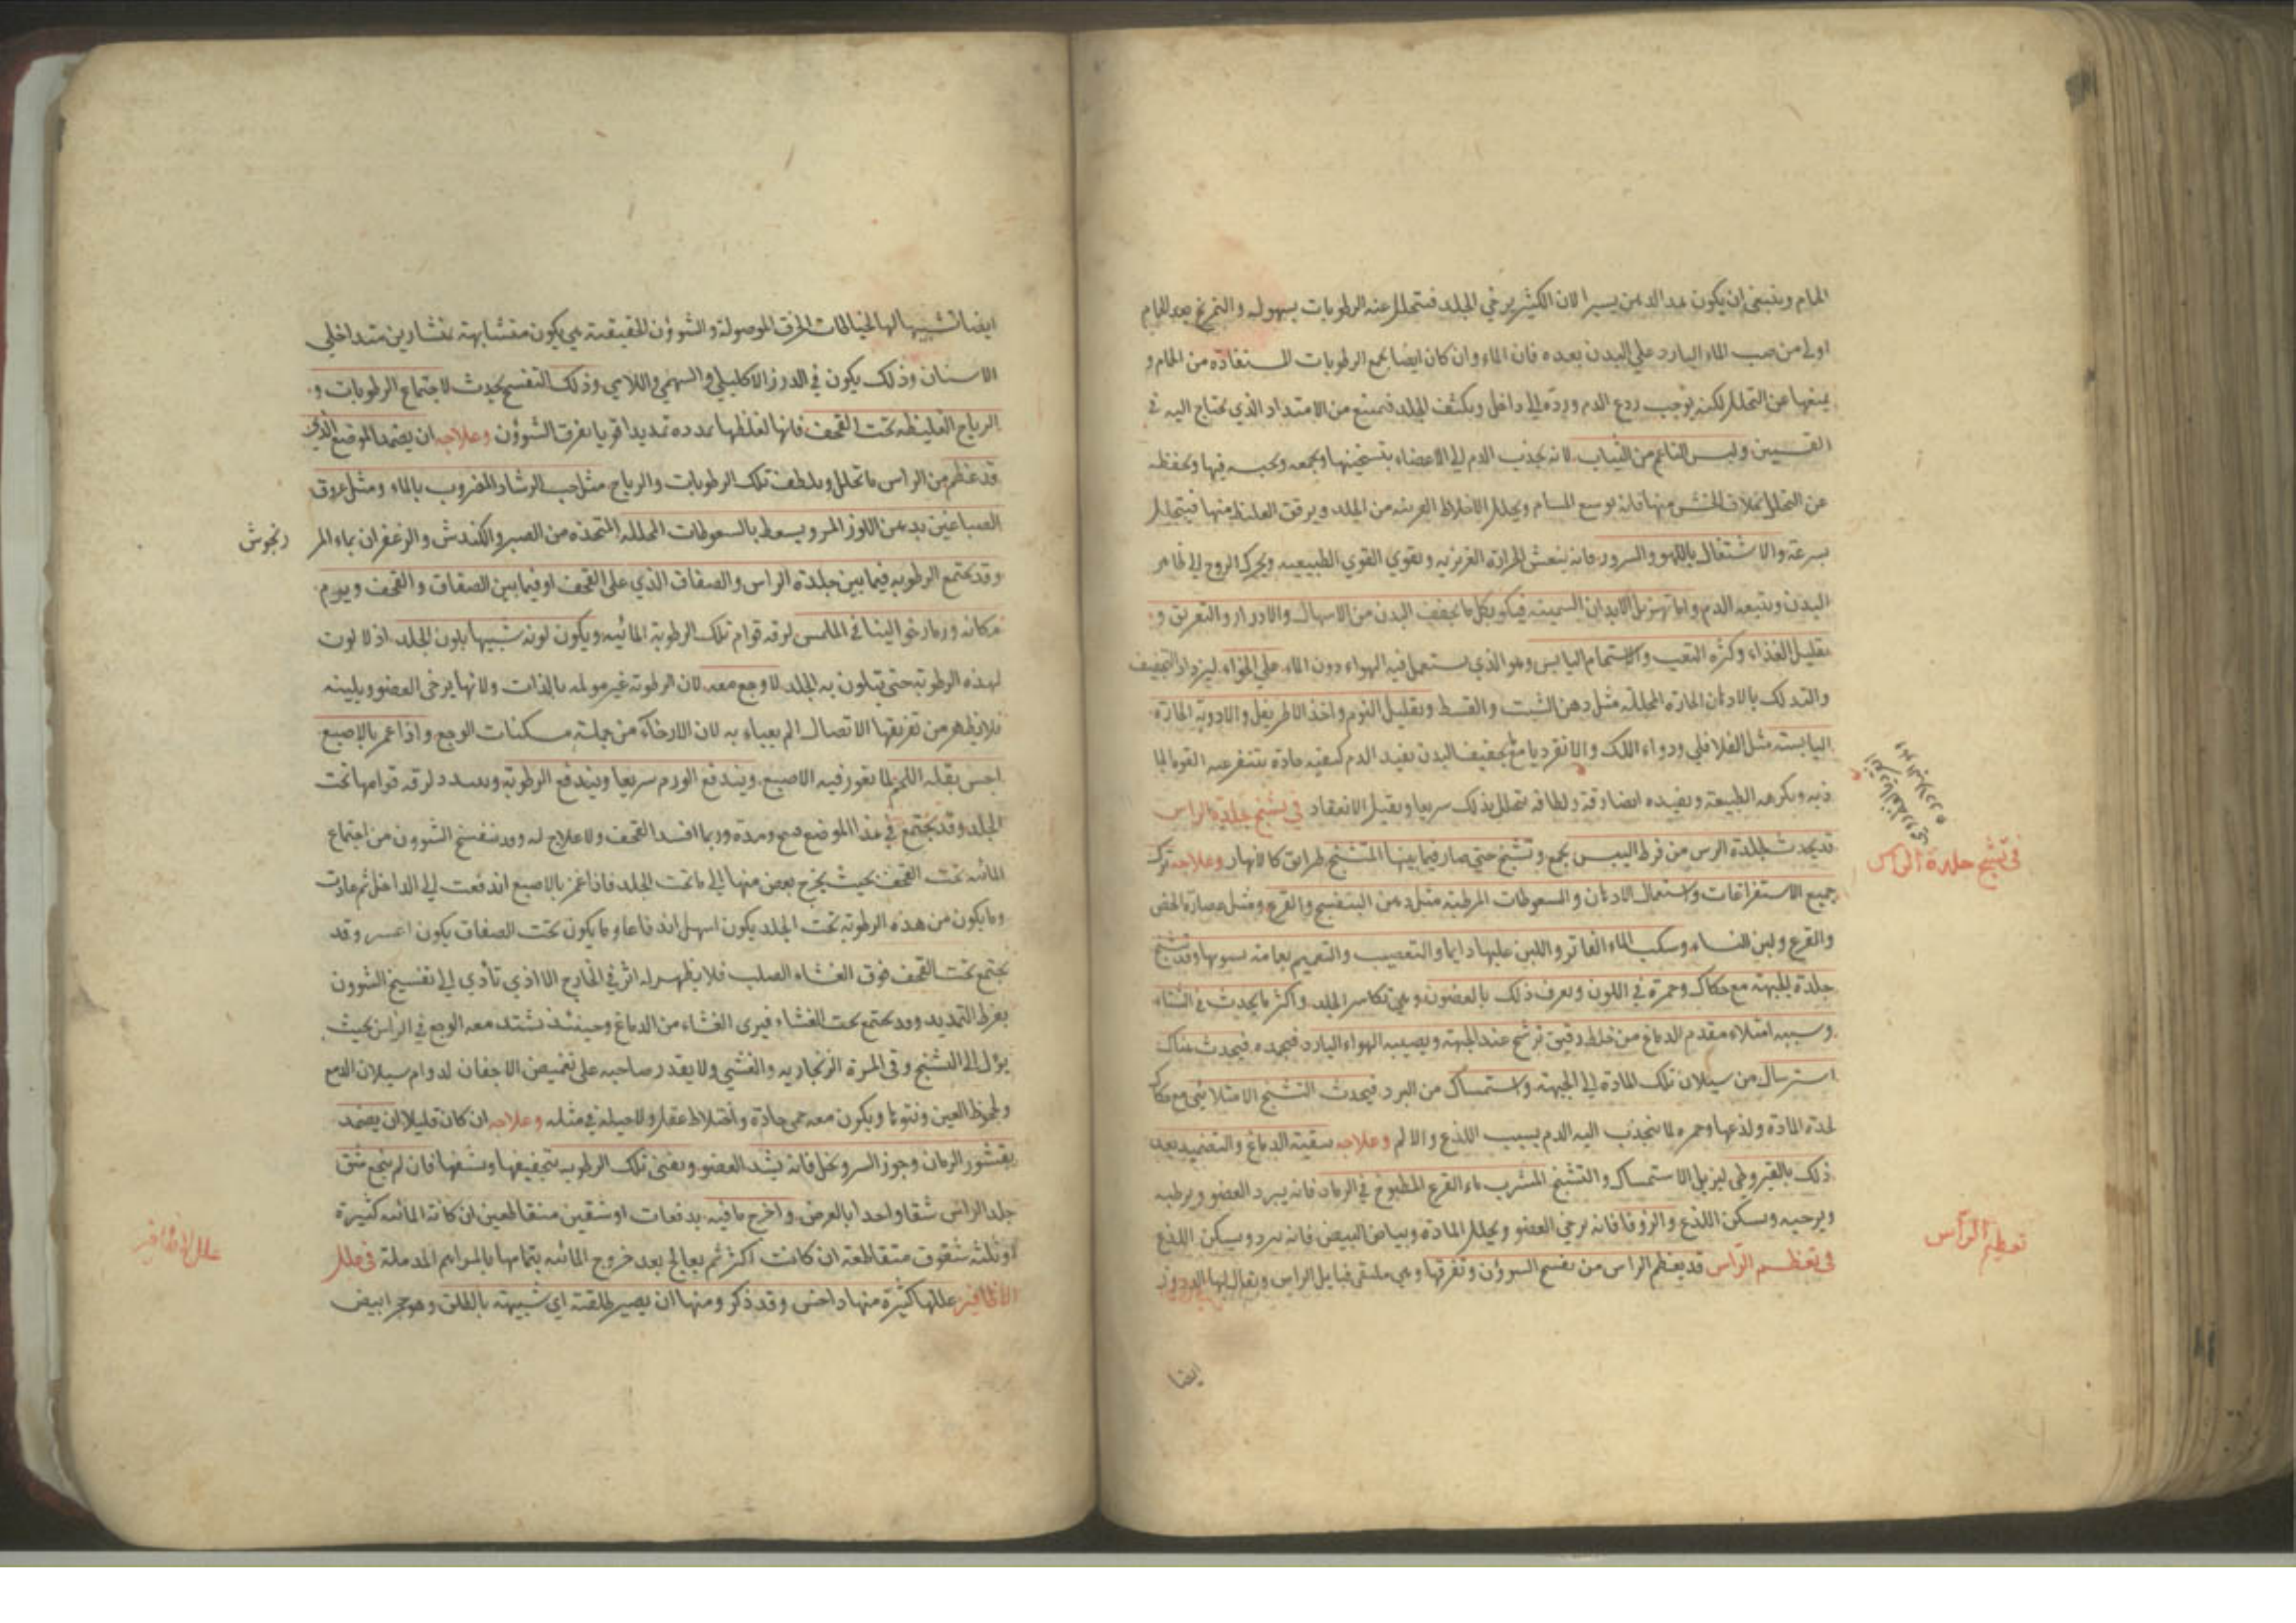 الحمام وينبغي ان يكون هذا الدهن يسيرا لان الكثير يرخي الجلد فتتحلل عنه الرطوبات بسهوله والتمرخ بعد الحمام
اولي من صب الماء البارد علي البدن بعده فان الماء وان كان ايضا يجمع الرطوبات المستفادة من الحمام و
يمنعها عن التحلل لكنه يوجب ردع الدم ورده الي داخل ويكثف الجلد فيمنع من الامتداد الذي يحتاج اليه في
التسمين ولبس الناعم من الثياب لانه يجذب الدم الي الاعضاء بتسخينها ويجمعه ويحبسه فيها ويحفظه
عن التحلل بخلاف الخشن منها فانه يوسع المسام ويحلل الاخلاط القريبه من الجلد ويرقق الغليظ منها فيتحلل
بسرعة والاشتغال باللهو والسرور فانه ينعش الحرارة الغريزيه ويقوي القوي الطبيعيه ويحرك الروح الي ظاهر
البدن ويتبعه الدم واما تهزيل الابدان السمينه فيكون بكل ما يجفف البدن من الاسهال والادرار والتعريق و
تقليل الغذاء وكثرة التعب والاستحمام اليابس وهو الذي يستعمل فيه الهواء دون الماء علي الخواء ليزداد التجفيف
والتدلك بالادهان الحارة المحللة مثل دهن الشبت والقسط وتقليل النوم واخذ الاطريفل والادوية الحارة
اليابسة مثل الفلافلي ودواء اللك والانقرديا مع تجفيف البدن يفيد الدم كيفيه حادة يتنفر عنه القوة الجا
ذبه ويكرهه الطبيعة ويفيده ايضا رقة ولطافة يتحلل بذلك سريعا ويقبل الانعقاد في تشنج جلدة الراس
قد يحدث لجلدة الرس من فرط اليبس تجمع وتشنج حتي صار فيما بينها المتشنج طرايق كالانهار وعلاجه ترك
جميع الاستفراغات واستعمال الادهان والسعوطات المرطبة مثل دهن البنفسج والقرع ومثل عصارة الخس
والقرع ولبن النساء وسكب الماء الفاتر واللبن عليها دايما والتعصيب والتعميم بعمامة يسويها وقد تتشنج
جلدة الجبهة مع حكاك وحمرة في اللون ويعرف ذلك بالغضون وهي تكاسر الجلد واكثر ما يحدث في الشتاء
وسببه امتلاء مقدم الدماغ من خلط رقيق ترشح عند الجبهة ويصيبه الهواء البارد فيجمده فيحدث هناك
استرسال من سيلان تلك المادة الي الجبهة واستمساك من البرد فيحدث التشنج الامتلائي مع حكاك
لحدة المادة ولذعها وحمرة لما ينجذب اليه الدم بسبب اللذع والالم وعلاجه تنقية الدماغ والتضميد بعد
ذلك بالقيروطي ليزيل الاستمساك والتشنج المشرب ماء القرع المطبوخ في الرماد فانه يبرد العضو ويرطبه
ويرخيه ويسكن اللذع والزوفا فانه يرخي العضو ويحلل المادة وبياض البيض فانه يبرد ويسكن اللذع
في تعظم الرأس قد يعظم الراس من تفسخ الشوؤن وتفرقها وهي ملتقي قبايل الراس ويقال لها الدروز
ايضا
في تشنج جلدة الراس
تعظيم الرأس
ايضا تشبيها لها بخياطات الخرق الموصولة والشوؤن الحقيقية هي يكون متشابهة بمنشارين متداخلي
الاسنان وذلك يكون في الدرز الاكليلي والسهمي واللامي وذلك التفسخ يحدث لاجتماع الرطوبات و
الرياح الغليظه تحت القحف فانها لغلظها يمدده تمديدا قويا يفرق الشوؤن وعلاجه ان يضمد الموضع الذي
قد عظم من الراس ما تحلل ويلطف تلك الرطوبات والرياح مثل حب الرشاد المضروب بالماء ومثل عروق
الصباغين بدهن اللوز المر ويسعط بالسعوطات المحلله المتخذه من الصبر والكندش والزعفران بماء المر
زنجوش
وقد يجتمع الرطوبه فيما بين جلدة الراس والصفاق الذي علي القحف او فيما بين الصفاق والقحف ويورم
مكانه ورما رخوا لينا في الملمس لرقة قوام تلك الرطوبة المائيه ويكون لونه شبيها بلون الجلد اذ لا لون
لهذه الرطوبة حتي يتلون به الجلد لا وجع معه لان الرطوبة غير مولمه بالذات ولانها يرخي العضو ويلينه
فلان ظهر من تفريقها الاتصال الم يعباء به لان الارخاء من جملة مسكنات الوجع واذا غمز بالاصبع
احس بقلة اللحم لما يغور فيه الاصبع ويندفع الورم سريعا ويندفع الرطوبة ويتبدد لرقة قوامها تحت
الجلد وقد يجتمع في هذا الموضع قيح ومدة وربما افسد القحف ولا علاج له وقد ينفسخ الشوون من اجتماع
المائيه تحت القحف بحيث يخرج بعض منها الي ما تحت الجلد فاذا غمز بالاصبع اندفعت الي الداخل ثم عادت
وما يكون من هذه الرطوبة تحت الجلد يكون اسهل اندفاعا وما يكون تحت الصفاق يكون اعسر وقد
يجتمع تحت القحف فوق الغشاء الصلب فلا يظهر له اثر في الخارج الا اذي تأدي الي تفسيخ الشوون
بفرط التمديد وقد يجتمع تحت الغشاء فيبري الغشاء من الدماغ وحينئذ يشتد معه الوجع في الراس بحيث
يؤل الي التشنج وقي المرة الزنجاريه والغشي ولا يقدر صاحبه علي تغميض الاجفان لدوام سيلان الدمع
ولجحوظ العين ونتوها ويكون معه حمي حادة واختلاط عقل ولا حيلة في مثله وعلاجه ان كان قليلا ان يضمد
بقشور الرمان وجوز السرو بخل فانه يشد العضو ويفني تلك الرطوبه بتجفيفها ونشفها فان لم ينجع شق
جلد الراس شقا واحدا بالعرض واخرج ما فيه بدفعات او شقين متقاطعين ان كانت المائيه كثيرة
او ثلثه شقوق متقاطعة ان كانت اكثر ثم يعالج بعد خروج المائيه بتمامها بالمراهم المدملة في علل
الاظافير عللها كثيرة منها داحس وقد ذكر ومنها ان يصير طلقية اي شبيهة بالطلق وهو حجر ابيض
علل الاظافير